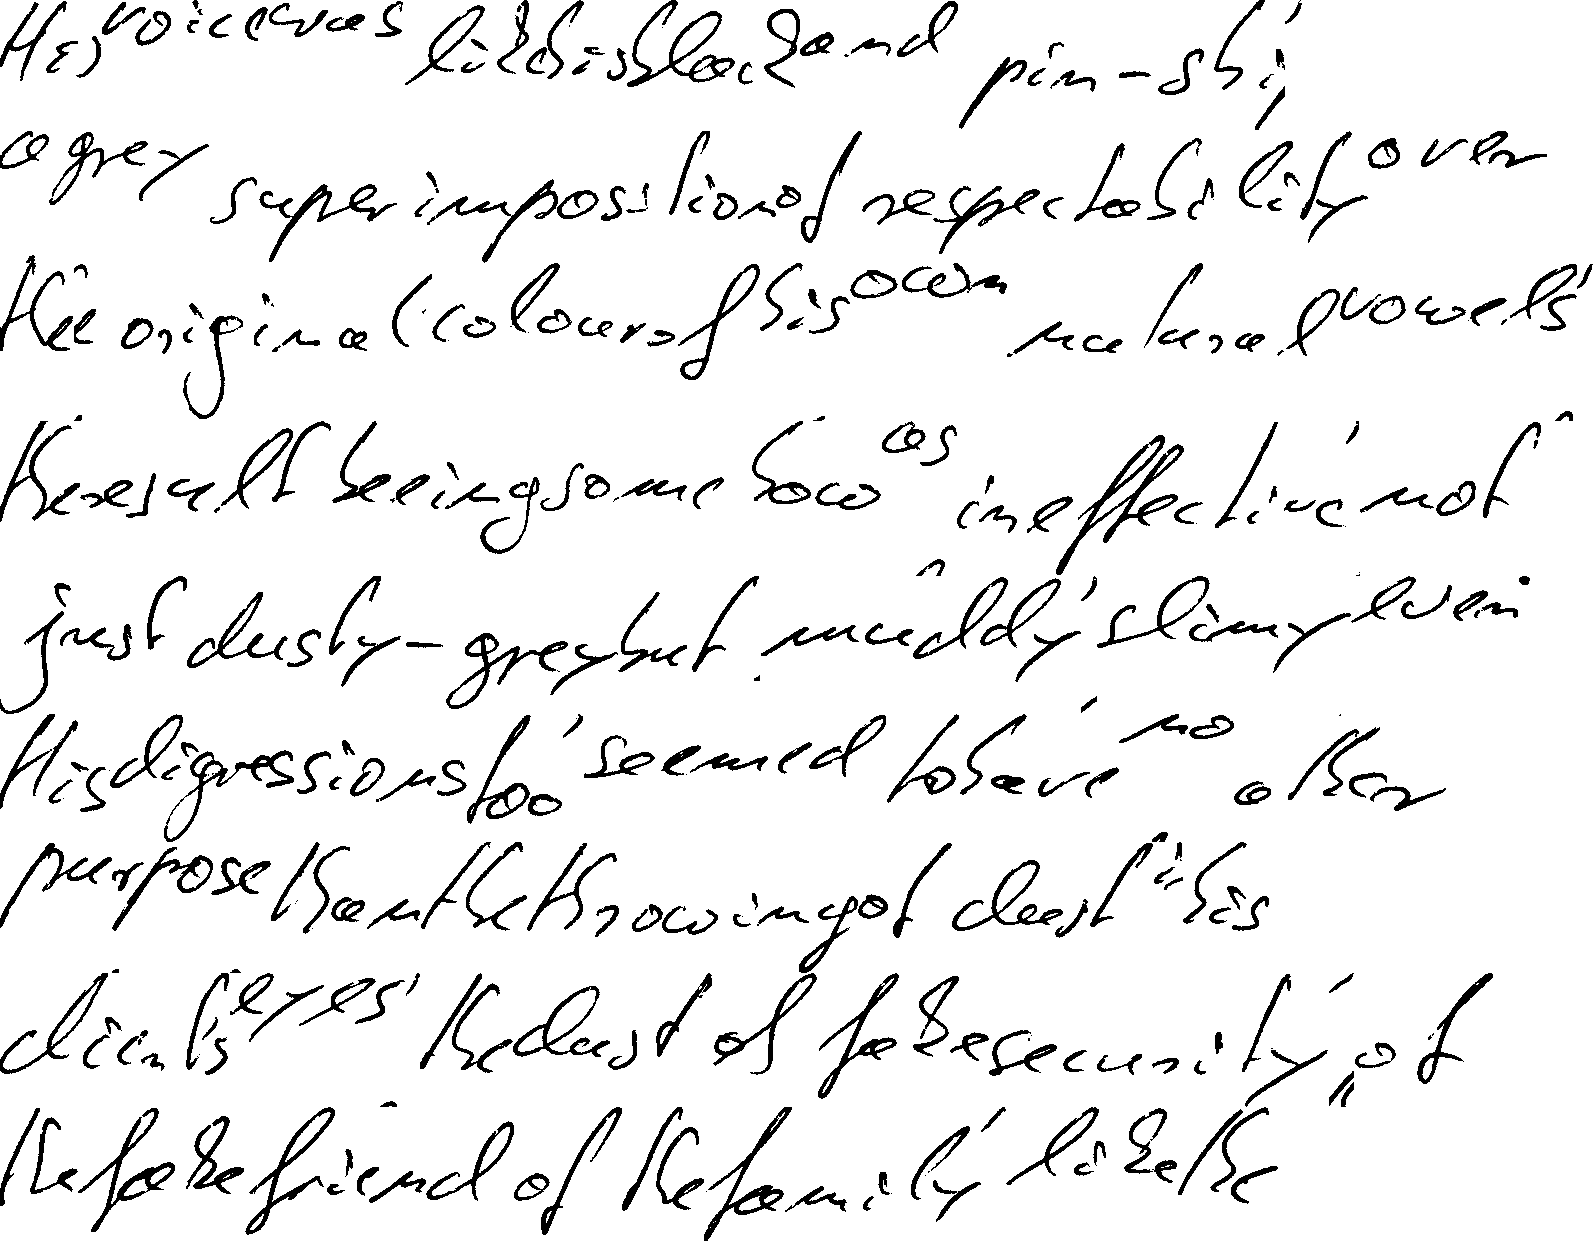 His voice was like his black and pin-stri,
a grey superimposition of respectability over
the original colour of his own natural vowels,
the result being somehow as ineffective not
just dusty-grey but muddy, slimy even.
His digressions too, seemed to have no other
purpose than the throwing of dust in his
client's eyes, the dust of fake security, "of
the fake friend of the family, like the